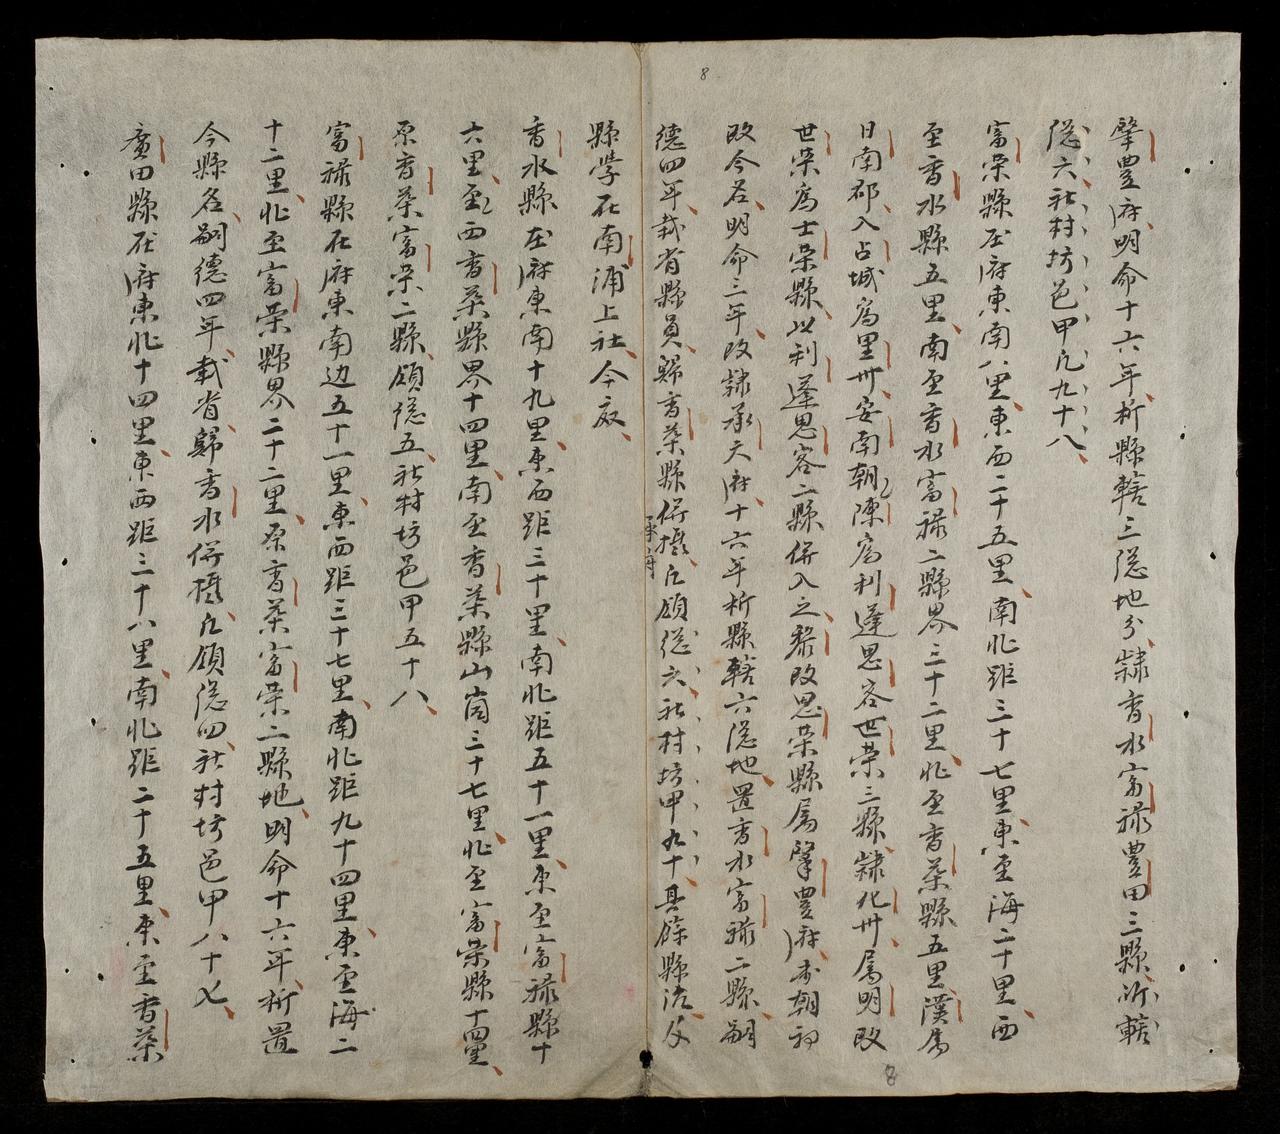 8
肇豊府明命十六年析縣轄三總地分隸香水富禄豊田三縣所轄
總六社村坊邑甲凡九十八
富榮縣在府東南八里東西二十五里南北距三十七里東至海二十里西
至香水縣五里南至香水富禄二縣界三十二里北至香茶縣五里漢爲
日南郡入占城爲里卅安南朝陳爲利蓬思容世榮三縣隸化卅屬明改
世榮爲士榮縣以利蓬思容二縣併入之黎改思榮縣屬肇豊府本朝初
改今名明命二年改隸承天府十六年析縣轄六總地置香水富禄二縣嗣
德四年裁省縣員歸香茶縣併攝凡領總六社村坊甲九十其餘縣涖及
縣學在南浦上社今廢
香水縣在府東南十九里東西距三十里南北距五十一里東至富禄縣十
六里至西香茶縣界十四里南至香茶縣山崗三十七里北至富榮縣十四里
原香茶富榮二縣領總五社村坊邑甲五十八
富禄縣在府東南边五十一里東西距三十七里南北距九十四里東至海二
十二里北至富榮縣界二十二里原香茶富榮二縣地明命十六年析置
今縣名嗣德四年裁省歸香水併攝凡領總四社村坊邑甲八十七
廣田縣在府東北十四里東西距三十八里南北距二十五里東至香茶
8